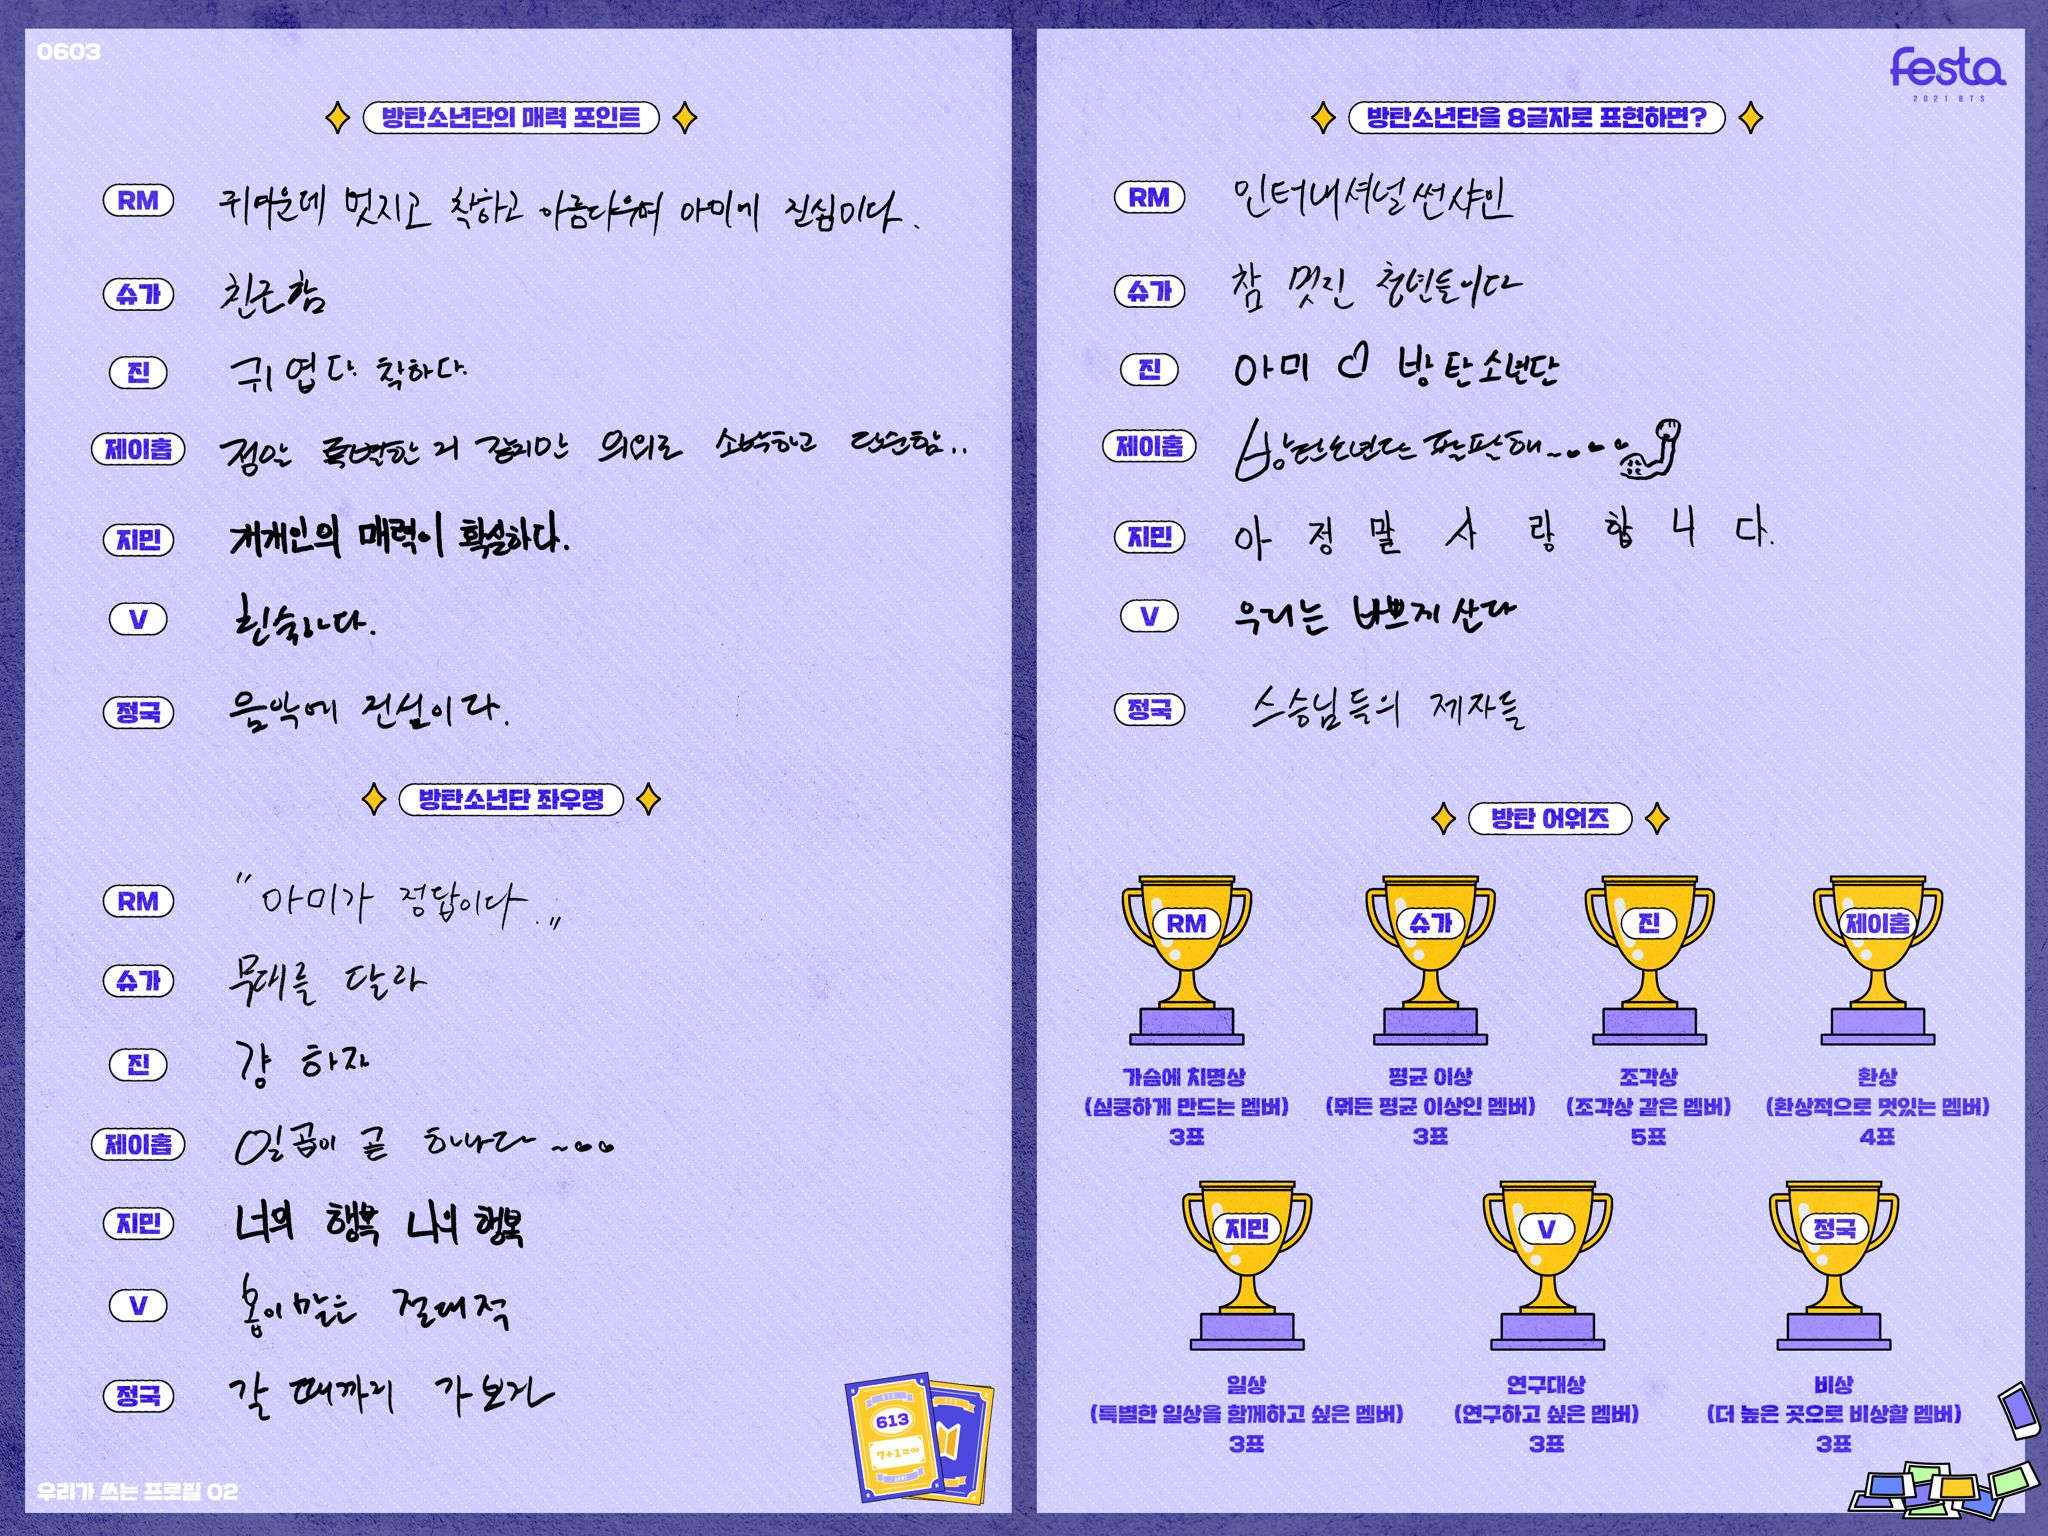 0603
방탄소년단의 매력 포인트
RM 귀여운데 멋지고 착하고 아름다우며 아미에 진심이다.
슈가 친근함
진 귀엽다. 착하다.
제이홉 정말 특별한 거 같지만 의외로 소박하고 단순함..
지민 개개인의 매력이 확실하다.
V 친숙하다.
정국 음악에 진심이다.
방탄소년단 좌우명
RM "아미가 정답이다."
슈가 무대를 달라
진 걍 하자
제이홉 일곱이 곧 하나다~..
지민 너의 행복 나의 행복
V 홉이 말은 절대적
정국 갈 때까지 가보자
613
7+1=∞
우리가 쓰는 프로필 02
festa
2021 BTS
방탄소년단을 8글자로 표현하면?
RM 인터내셔널썬샤인
슈가 참 멋진 청년들이다
진 아미 ♡ 방탄소년단
제이홉 방탄소년단 팔팔해~...
지민 아 정 말 사 랑 합 니 다.
V 우리는 바쁘지 산다
정국 스승님들의 제자들
방탄 어워즈
RM 슈가 진 제이홉
가슴에 치명상 평균 이상 조각상 환상
(심쿵하게 만드는 멤버) (뭐든 평균 이상인 멤버) (조각상 같은 멤버) (환상적으로 멋있는 멤버)
3표 3표 5표 4표
지민 V 정국
일상 연구대상 비상
(특별한 일상을 함께하고 싶은 멤버) (연구하고 싶은 멤버) (더 높은 곳으로 비상할 멤버)
3표 3표 3표